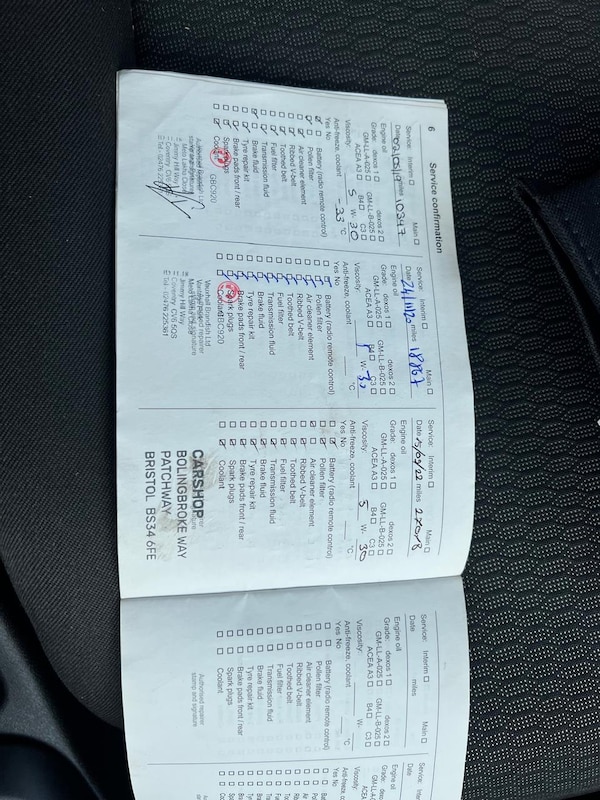 6 Service confirmation
Service: Interim ☐ Main ☐
miles 10347
Engine oil
Grade: dexos 1 ☐ dexos 2 ☐
GM-LL-A-025 ☐ GM-LL-B-025 ☐
ACEA A3 ☐ B4 ☐ C3 ☐
Viscosity: 5 W- 30
Anti-freeze, coolant -33 °C
Yes No
Battery (radio remote control)
Pollen filter
Air cleaner element
Ribbed V-belt
Toothed belt
Fuel filter
Transmission fluid
Brake fluid
Tyre repair kit
Brake pads front / rear
Spark plugs
Coolant
GBC920
Jimmy Hill Way
Coventry CV6
Tel: 02476 225
Service: Interim ☐ Main ☐
Date miles 18867
Engine oil
Grade: dexos 1 ☐ dexos 2 ☐
GM-LL-A-025 ☐ GM-LL-B-025 ☐
ACEA A3 ☐ B4 ☐ C3 ☐
Viscosity: W- 30
Anti-freeze, coolant °C
Yes No
Battery (radio remote control)
Pollen filter
Air cleaner element
Ribbed V-belt
Toothed belt
Fuel filter
Transmission fluid
Brake fluid
Tyre repair kit
Brake pads front / rear
Spark plugs
Coolant GBC920
Vauxhall Brandish Ltd
Jimmy Hill Way
Coventry CV6 5QS
Tel: 02476 225361
Service: Interim ☐ Main ☐
Date miles 27078
Engine oil
Grade: dexos 1 ☐ dexos 2 ☐
GM-LL-A-025 ☐ GM-LL-B-025 ☐
ACEA A3 ☐ B4 ☐ C3 ☐
Viscosity: 5 W- 30
Anti-freeze, coolant °C
Yes No
Battery (radio remote control)
Pollen filter
Air cleaner element
Ribbed V-belt
Toothed belt
Fuel filter
Transmission fluid
Brake fluid
Tyre repair kit
Brake pads front / rear
Spark plugs
Coolant
CARSHOP
BOLINGBROKE WAY
PATCHWAY
BRISTOL BS34 6FE
Service: Interim ☐ Main ☐
Date miles
Engine oil
Grade: dexos 1 ☐ dexos 2 ☐
GM-LL-A-025 ☐ GM-LL-B-025 ☐
ACEA A3 ☐ B4 ☐ C3 ☐
Viscosity: W-
Anti-freeze, coolant °C
Yes No
Battery (radio remote control)
Pollen filter
Air cleaner element
Ribbed V-belt
Toothed belt
Fuel filter
Transmission fluid
Brake fluid
Tyre repair kit
Brake pads front / rear
Spark plugs
Coolant
Authorised repairer
stamp and signature
Service:
Date
Engine oil
Grade:
Viscosity:
Yes No